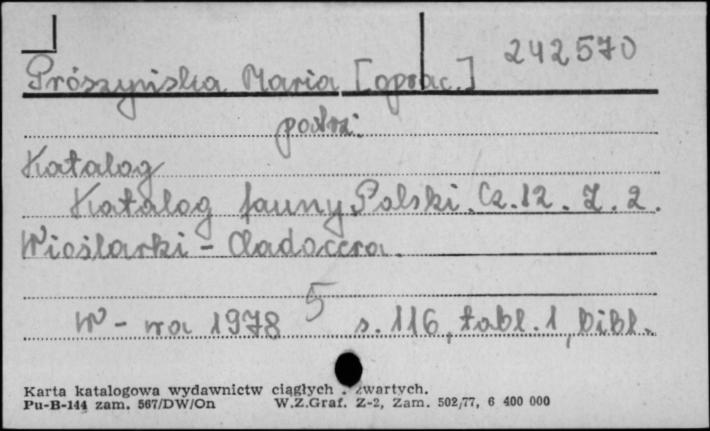 242570
Prószyńska Maria [oprac.]
patrz:
Katalog
Katalog fauny Polski. Cz. 12. Z. 2.
Wioślarki - Cladocera.
5
W-wa 1978 s. 116, tabl. 1, bibl.
Karta katalogowa wydawnictw ciągłych . zwartych.
Pu-B-144 zam. 567/DW/On W.Z.Graf. Z-2, Zam. 502/77, 6 400 000